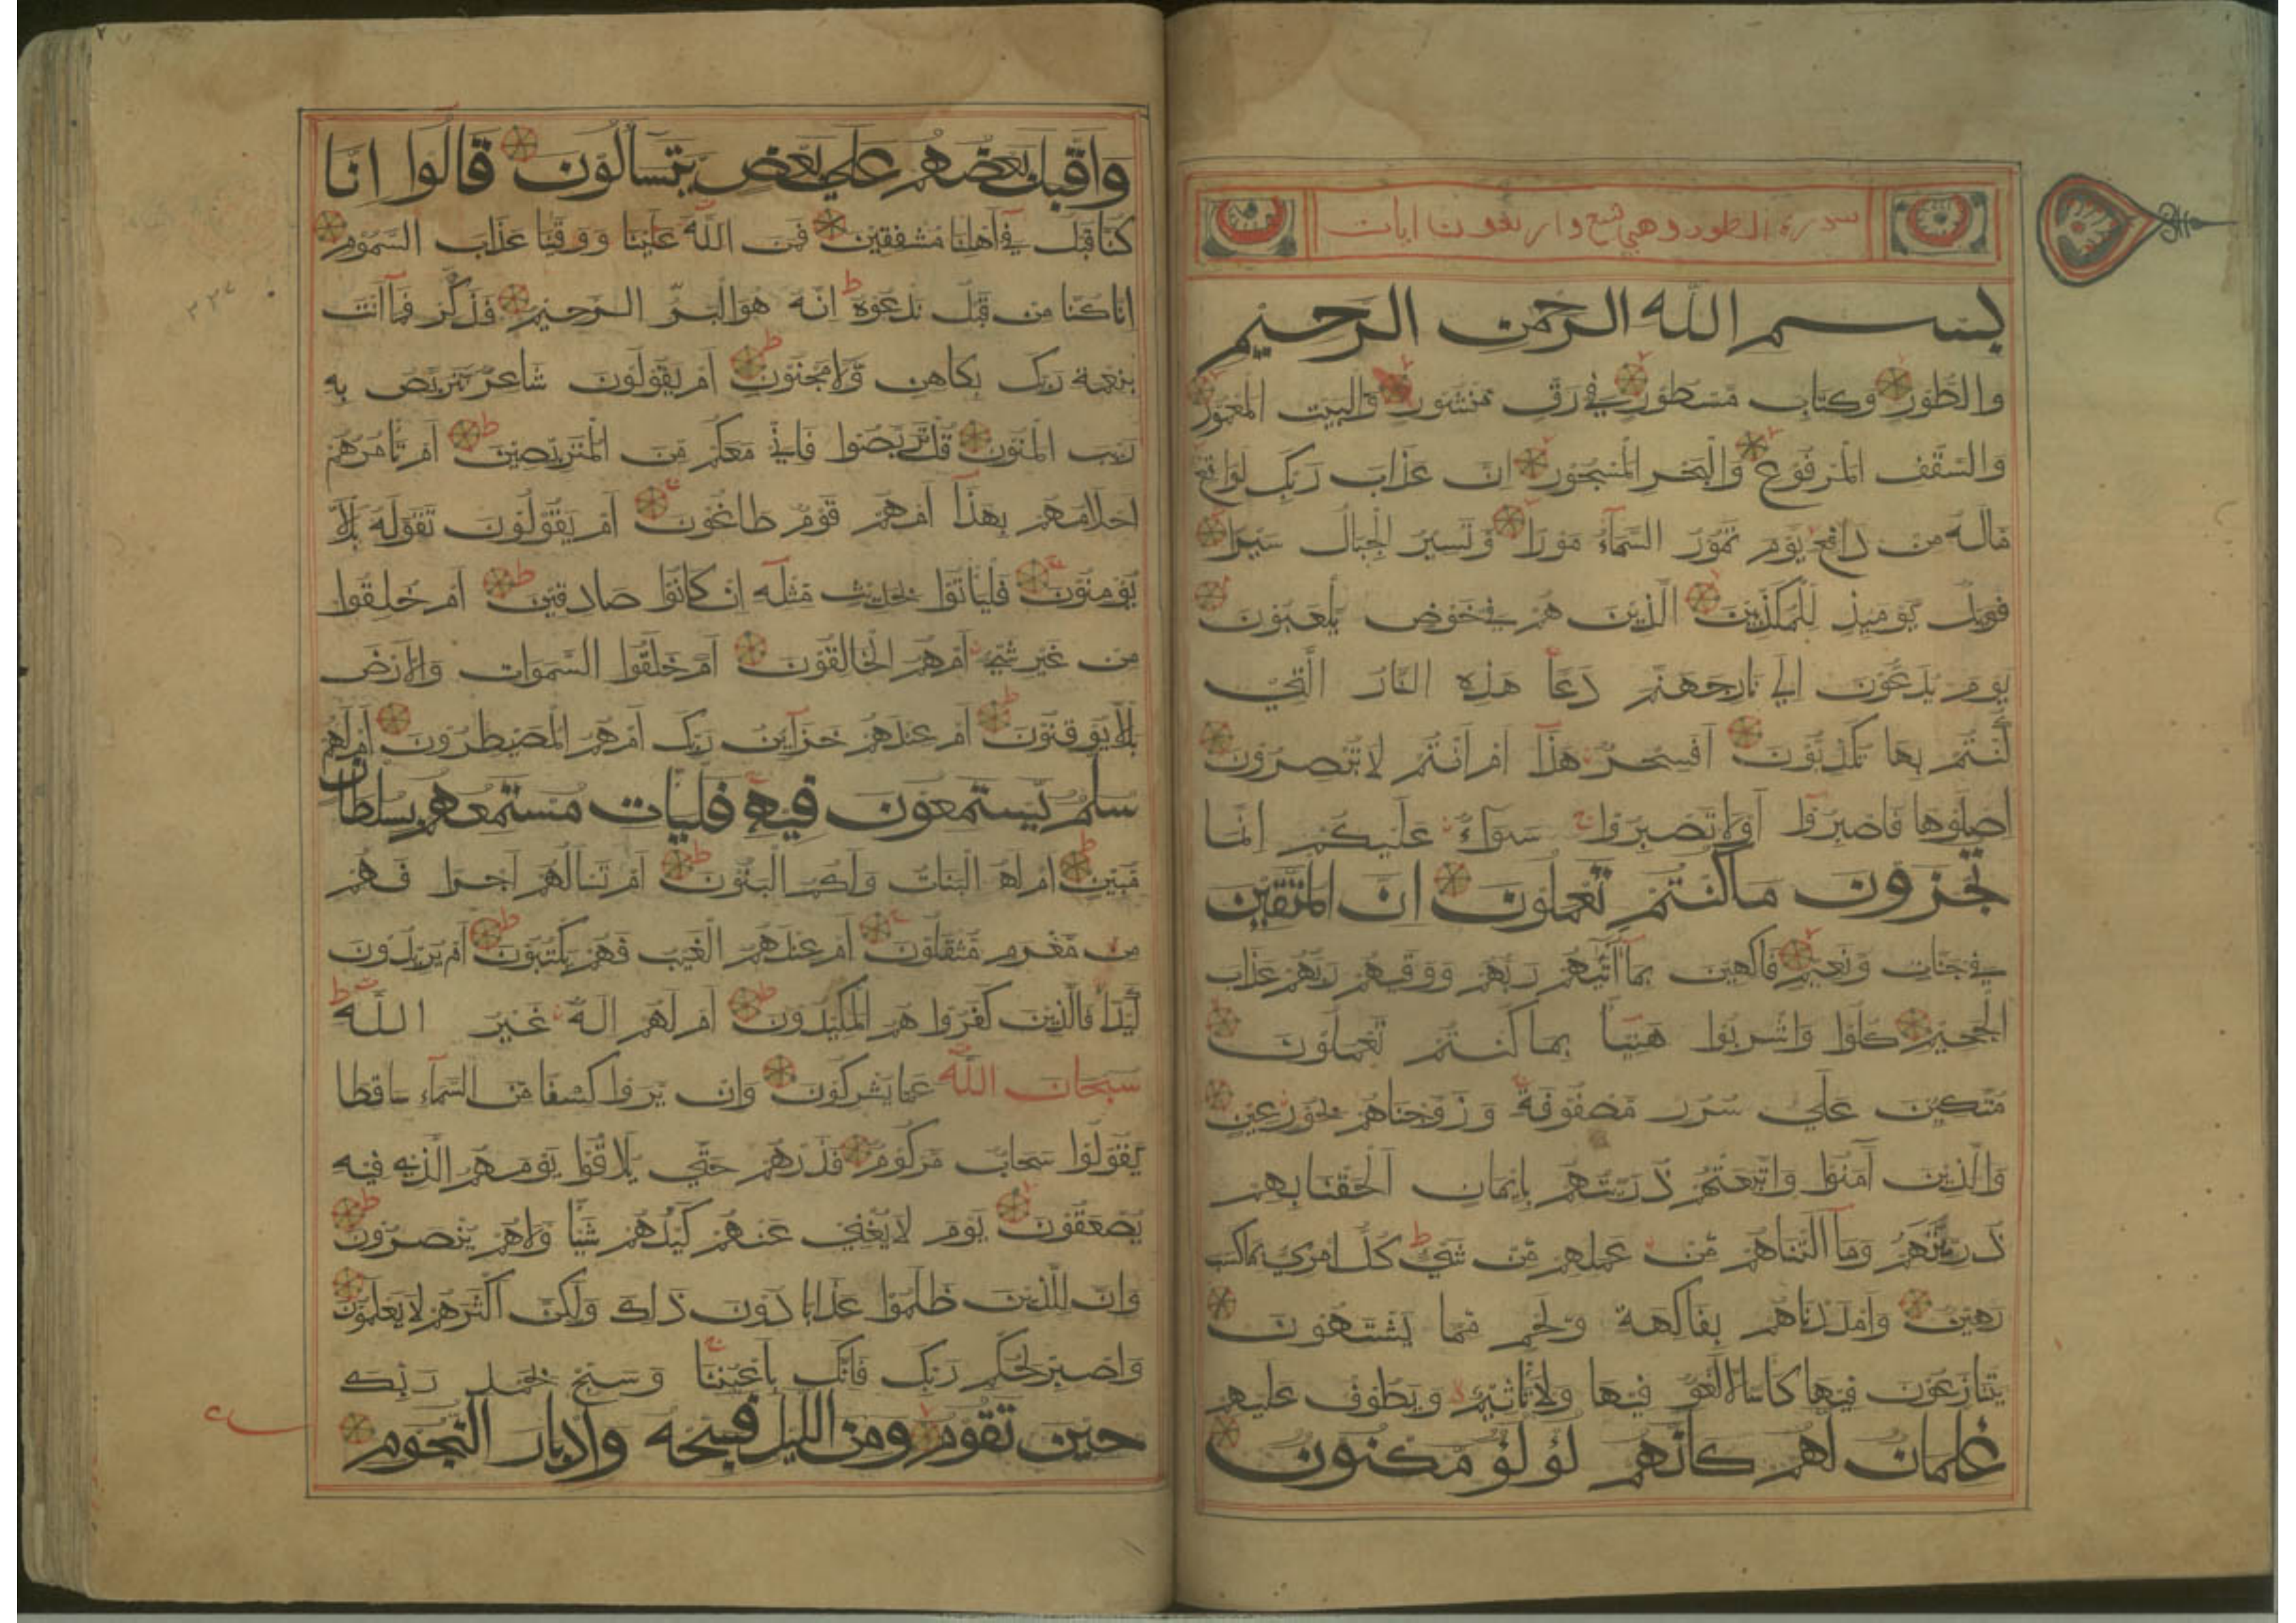 سورة الطور وهي تسع واربعون ايات
بسم الله الرحمن الرحيم
والطُّورِ وَكِتابٍ مَسْطُورٍ في رَقٍّ مَنْشُورٍ وَالبَيْتِ المَعْمُورِ
وَالسَّقْفِ المَرْفُوعِ وَالبَحْرِ المَسْجُورِ انَّ عَذَابَ رَبِّكَ لَوَاقِعٌ
مَالَهُ مِنْ دَافِعٍ يَوْمَ تَمُوْرُ السَّمَآءُ مَوْرًا وَتَسِيْرُ الْجِبَالُ سَيْرًا
فَوَيْلٌ يَوْمَئِذٍ لِلْمُكَذِّبِيْنَ الَّذِيْنَ هُمْ فِي خَوْضٍ يَلْعَبُوْنَ
يَوْمَ يُدَعُّوْنَ الي نَارِ جَهَنَّمَ دَعًّا هَذِهِ النَّارُ الَّتِيْ
كُنْتُمْ بِهَا تُكَذِّبُوْنَ اَفَسِحْرٌ هَذَآ اَمْ اَنْتُمْ لا تُبْصِرُوْنَ
اِصْلَوْهَا فَاصْبِرُوْآ اَوْ لا تَصْبِرُوْا سَوَآءٌ عَلَيْكُمْ اِنَّمَا
تُجْزَوْنَ مَا كُنْتُمْ تَعْمَلُوْنَ اِنَّ المُتَّقِيْنَ
فِي جَنَّاتٍ وَّنَعِيْمٍ فَاكِهِيْنَ بِمَآ اٰتٰيهُمْ رَبُّهُمْ وَوَقٰيهُمْ رَبُّهُمْ عَذَابَ
الْجَحِيْمِ كُلُوْا وَاشْرَبُوْا هَنِيْئًا بِمَا كُنْتُمْ تَعْمَلُوْنَ
مُتَّكِئِيْنَ عَلَي سُرُرٍ مَصْفُوْفَةٍ وَزَوَّجْنَاهُمْ بِحُوْرٍ عِيْنٍ
وَالَّذِيْنَ آمَنُوْا وَاتَّبَعَتْهُمْ ذُرِّيَّتُهُمْ بِاِيْمَانٍ اَلْحَقْنَا بِهِمْ
ذُرِّيَّتَهُمْ وَمَآ اَلَتْنَاهُمْ مِّنْ عَمَلِهِمْ مِّنْ شَيْءٍ كُلُّ امْرِئٍ بِمَا كَسَبَ
رَهِيْنٌ وَاَمْدَدْنَاهُمْ بِفَاكِهَةٍ وَّلَحْمٍ مِّمَّا يَشْتَهُوْنَ
يَتَنَازَعُوْنَ فِيْهَا كَاْسًا لا لَغْوٌ فِيْهَا وَلا تَاْثِيْمٌ وَيَطُوْفُ عَلَيْهِمْ
غِلْمَانٌ لَّهُمْ كَاَنَّهُمْ لُؤْلُؤٌ مَّكْنُوْنٌ
وَاَقْبَلَ بَعْضُهُمْ عَلَي بَعْضٍ يَّتَسَآلُوْنَ قَالُوْا اِنَّا
كُنَّا قَبْلُ فِيْ اَهْلِنَا مُشْفِقِيْنَ فَمَنَّ اللّٰهُ عَلَيْنَا وَوَقٰنَا عَذَابَ السَّمُوْمِ
اِنَّا كُنَّا مِنْ قَبْلُ نَدْعُوْهُ اِنَّهُ هُوَ الْبَرُّ الرَّحِيْمُ فَذَكِّرْ فَمَآ اَنْتَ
بِنِعْمَةِ رَبِّكَ بِكَاهِنٍ وَّلا مَجْنُوْنٍ اَمْ يَقُوْلُوْنَ شَاعِرٌ نَّتَرَبَّصُ بِهِ
رَيْبَ الْمَنُوْنِ قُلْ تَرَبَّصُوْا فَاِنِّيْ مَعَكُمْ مِّنَ الْمُتَرَبِّصِيْنَ اَمْ تَاْمُرُهُمْ
اَحْلامُهُمْ بِهَذَآ اَمْ هُمْ قَوْمٌ طَاغُوْنَ اَمْ يَقُوْلُوْنَ تَقَوَّلَهُ بَلْ لاَّ
يُؤْمِنُوْنَ فَلْيَاْتُوْا بِحَدِيْثٍ مِّثْلِهِ اِنْ كَانُوْا صَادِقِيْنَ اَمْ خُلِقُوْا
مِنْ غَيْرِ شَيْءٍ اَمْ هُمُ الْخَالِقُوْنَ اَمْ خَلَقُوا السَّمَوَاتِ وَالْاَرْضَ
بَلْ لاَّ يُوْقِنُوْنَ اَمْ عِنْدَهُمْ خَزَآئِنُ رَبِّكَ اَمْ هُمُ الْمُصَيْطِرُوْنَ اَمْ لَهُمْ
سُلَّمٌ يَّسْتَمِعُوْنَ فِيْهِ فَلْيَاْتِ مُسْتَمِعُهُمْ بِسُلْطَانٍ
مُّبِيْنٍ اَمْ لَهُ الْبَنَاتُ وَلَكُمُ الْبَنُوْنَ اَمْ تَسْاَلُهُمْ اَجْرًا فَهُمْ
مِنْ مَّغْرَمٍ مُّثْقَلُوْنَ اَمْ عِنْدَهُمُ الْغَيْبُ فَهُمْ يَكْتُبُوْنَ اَمْ يُرِيْدُوْنَ
كَيْدًا فَالَّذِيْنَ كَفَرُوْا هُمُ الْمَكِيْدُوْنَ اَمْ لَهُمْ اِلَهٌ غَيْرُ اللّٰهِ
سُبْحَانَ اللّٰهِ عَمَّا يُشْرِكُوْنَ وَاِنْ يَّرَوْا كِسْفًا مِّنَ السَّمَآءِ سَاقِطًا
يَّقُوْلُوْا سَحَابٌ مَّرْكُوْمٌ فَذَرْهُمْ حَتَّي يُلاقُوْا يَوْمَهُمُ الَّذِيْ فِيْهِ
يُصْعَقُوْنَ يَوْمَ لا يُغْنِيْ عَنْهُمْ كَيْدُهُمْ شَيْئًا وَّلا هُمْ يُنْصَرُوْنَ
وَاِنَّ لِلَّذِيْنَ ظَلَمُوْا عَذَابًا دُوْنَ ذَلِكَ وَلَكِنَّ اَكْثَرَهُمْ لا يَعْلَمُوْنَ
وَاصْبِرْ لِحُكْمِ رَبِّكَ فَاِنَّكَ بِاَعْيُنِنَا وَسَبِّحْ بِحَمْدِ رَبِّكَ
حِيْنَ تَقُوْمُ وَمِنَ اللَّيْلِ فَسَبِّحْهُ وَاِدْبَارَ النُّجُوْمِ